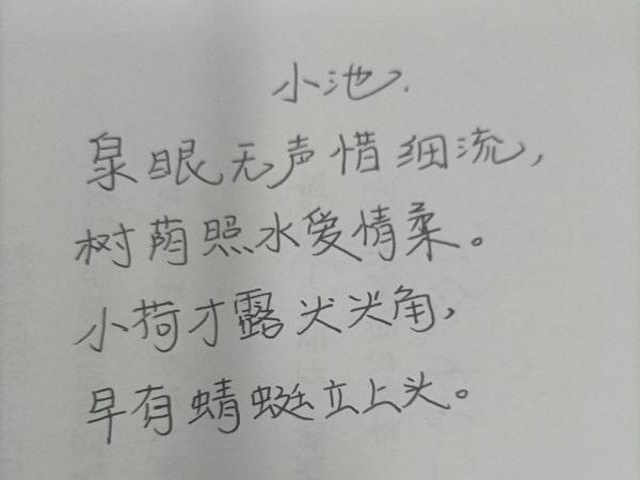 小池.
泉眼无声惜细流,
树荫照水爱情柔。
小荷才露尖尖角,
早有蜻蜓立上头。